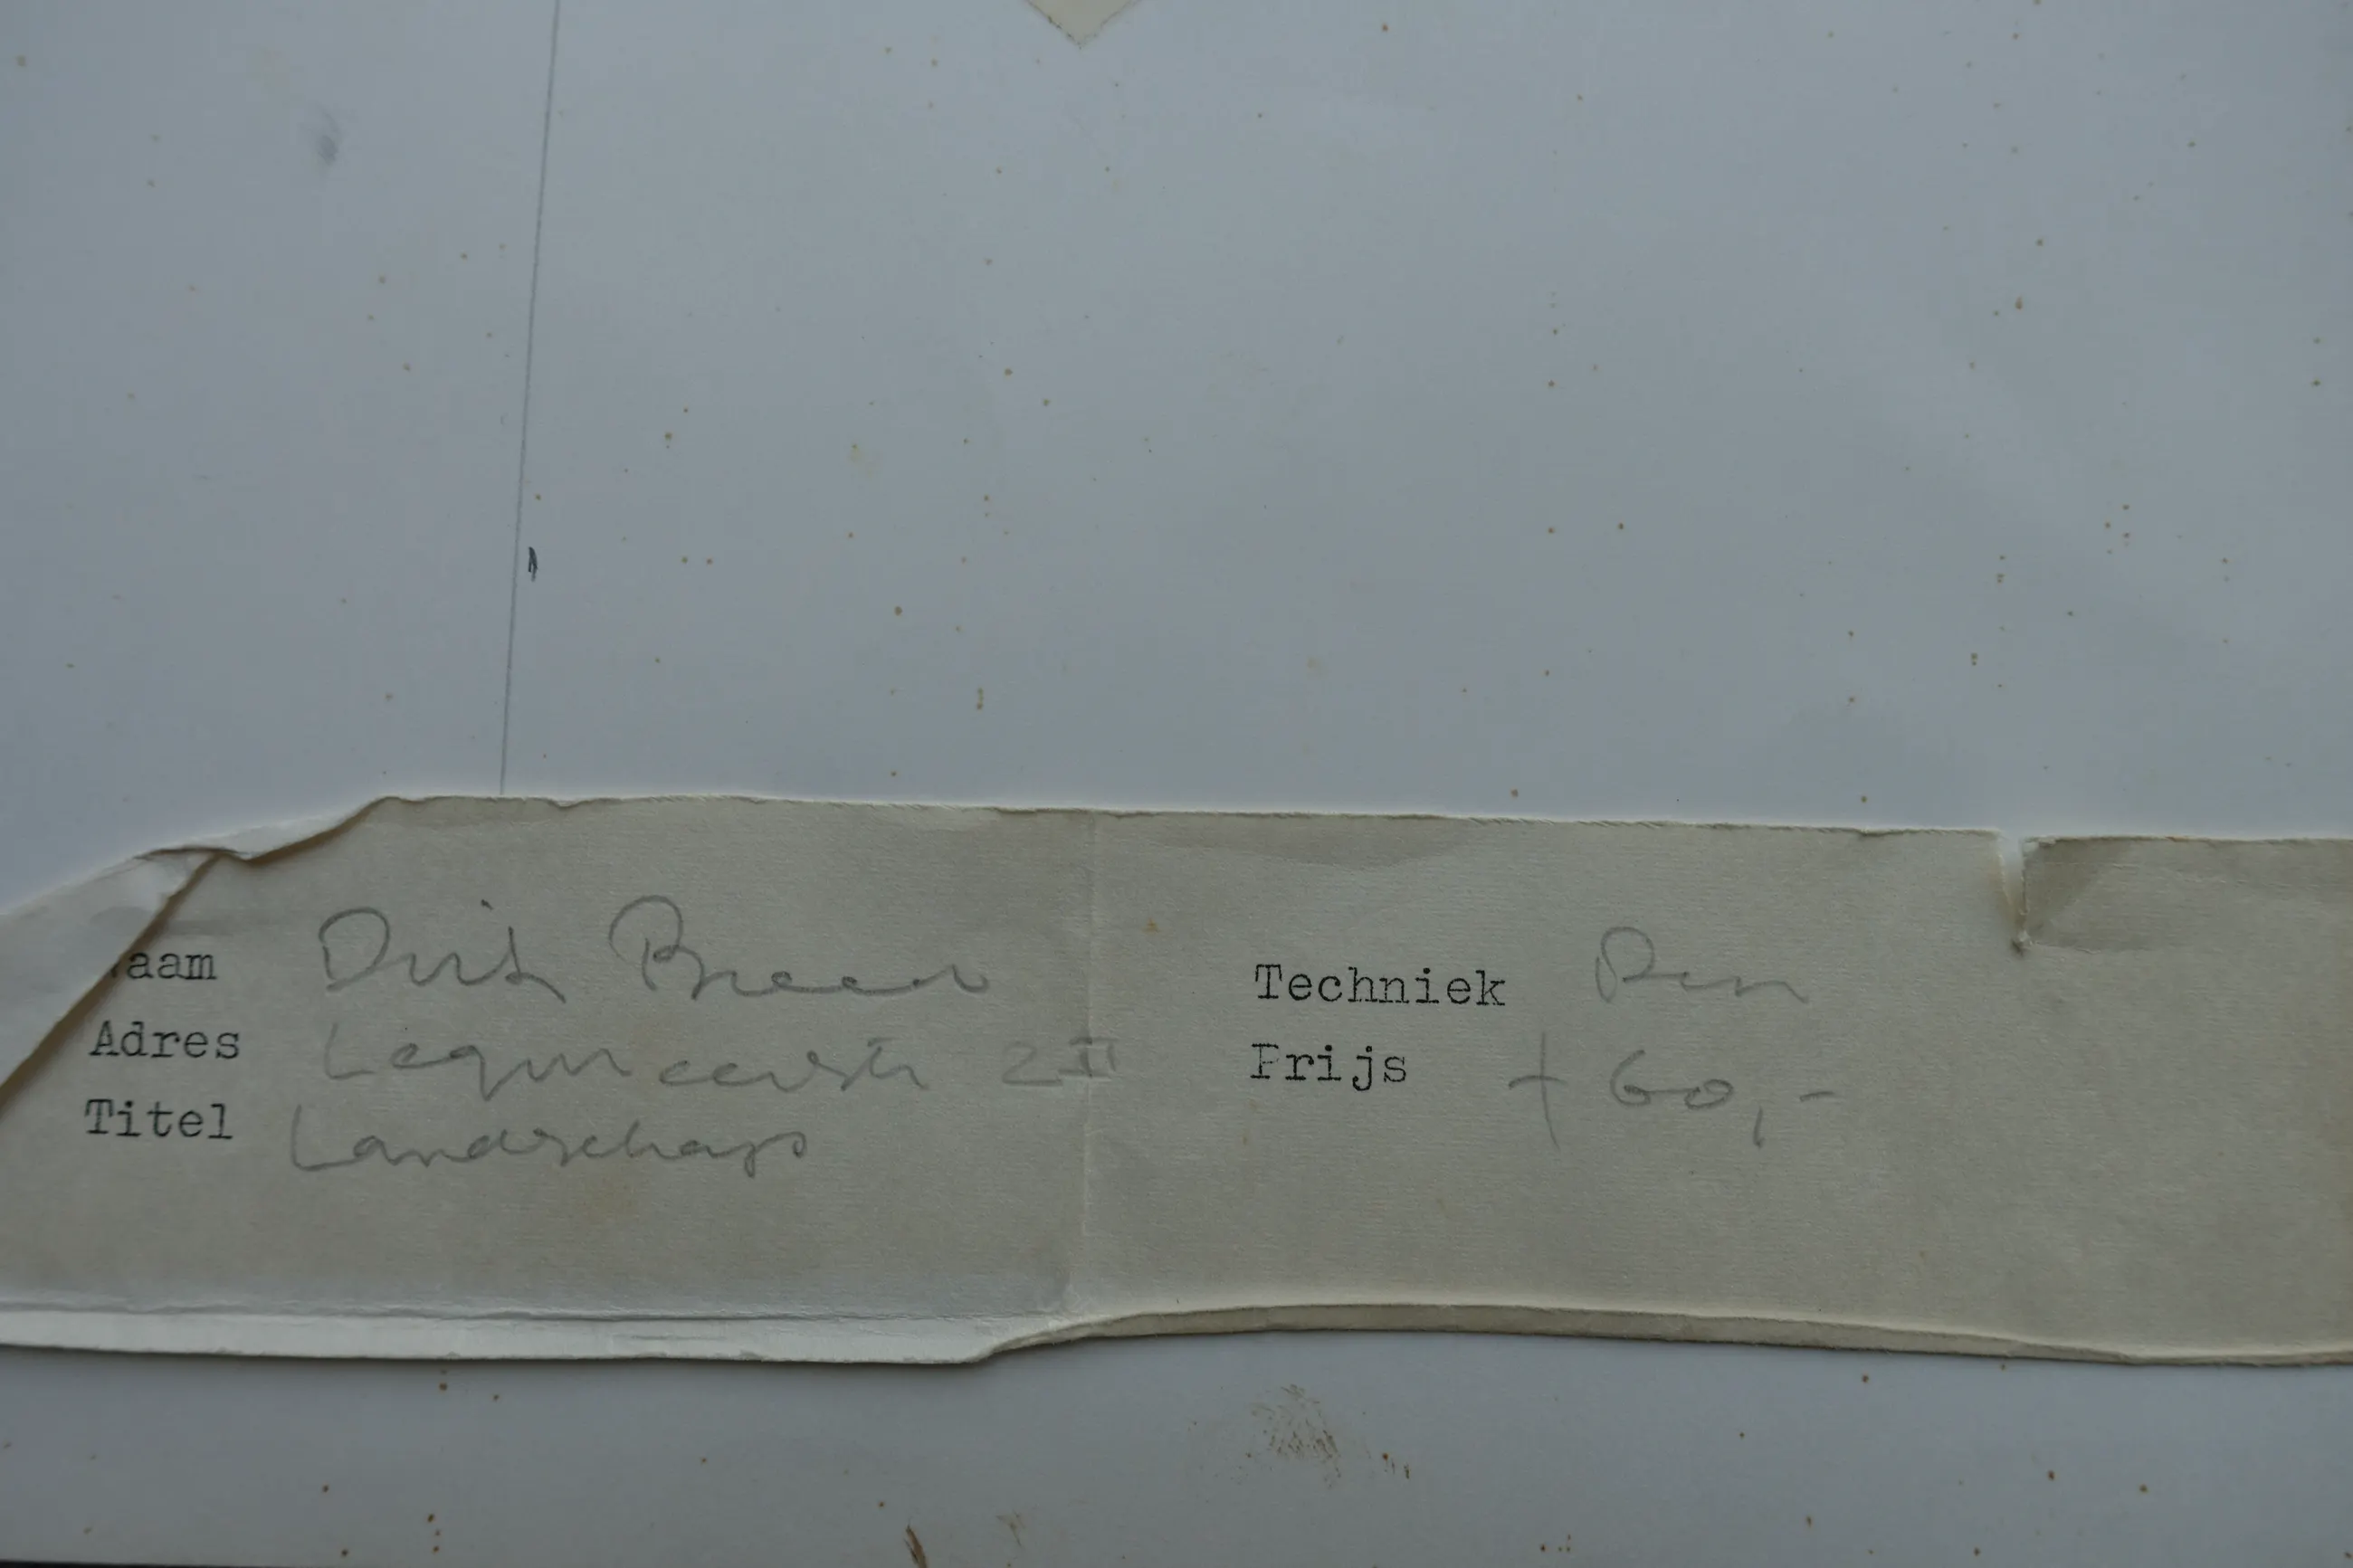 Naam Dirk Breed
Adres Legmeerstr 2 II
Titel Landschap
Techniek Pen
Prijs f 60,-